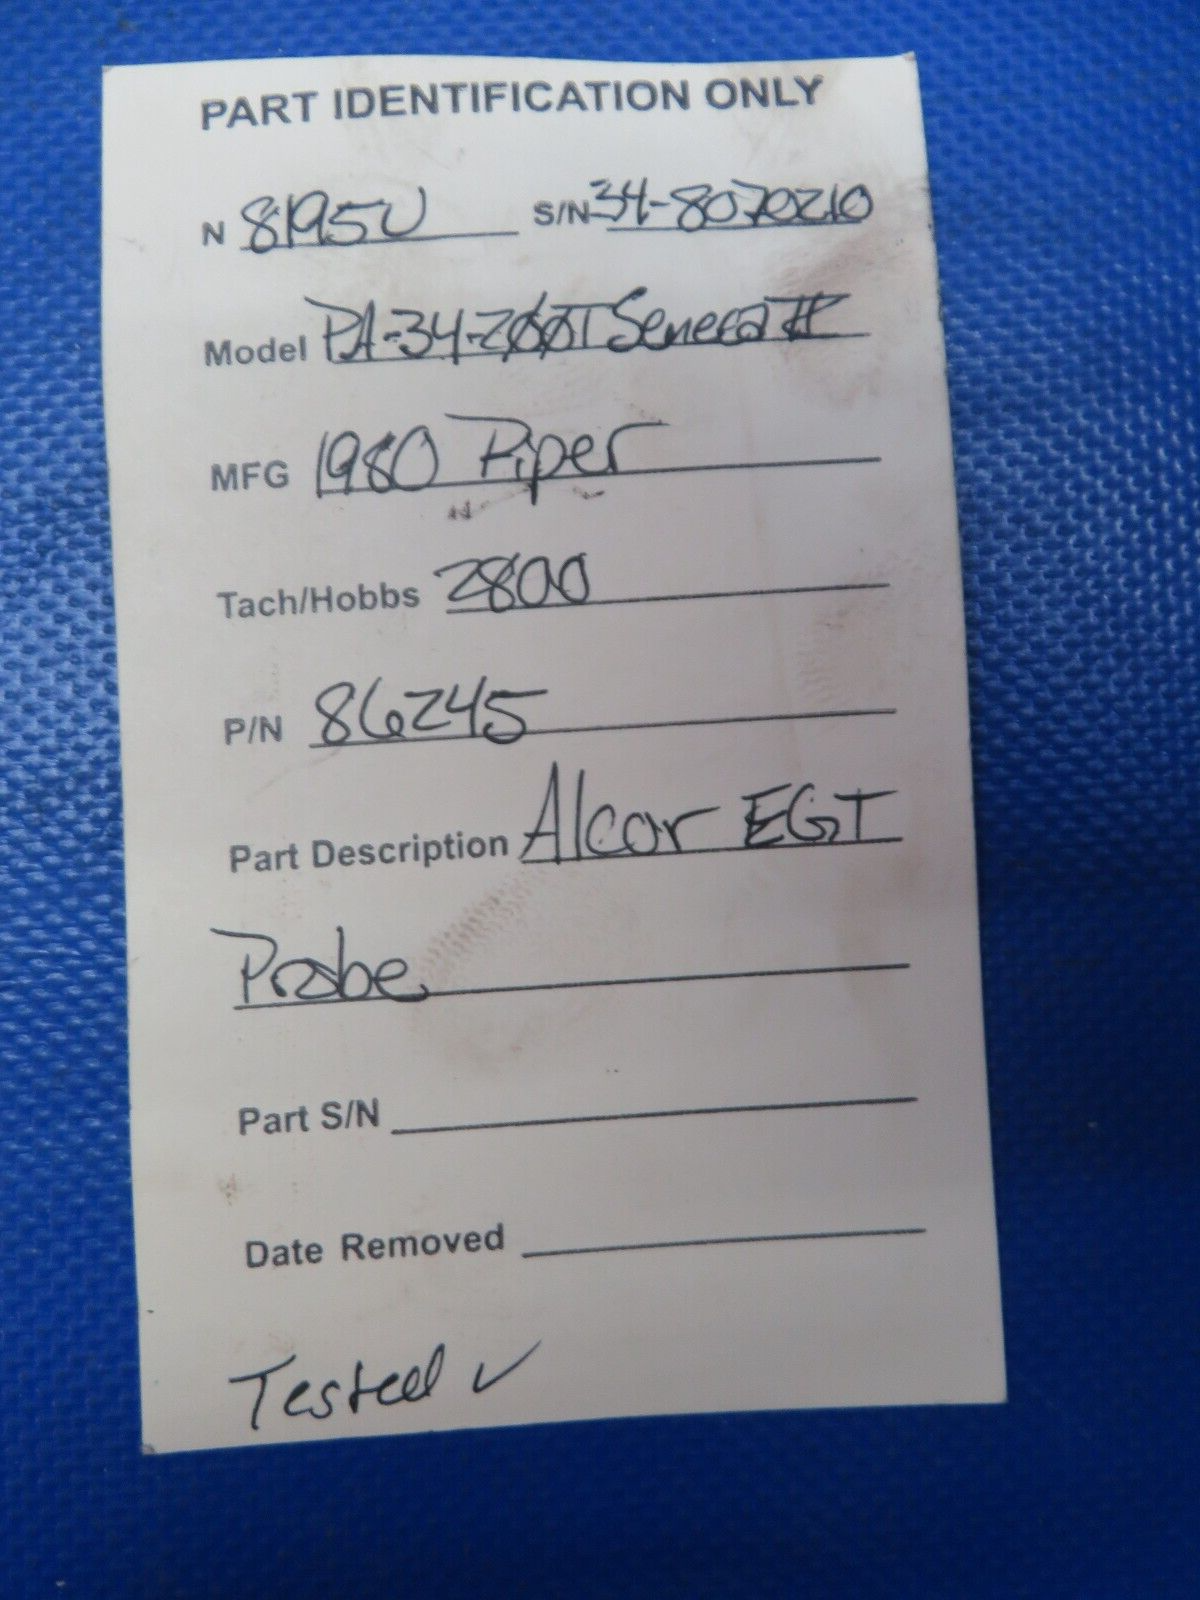 PART IDENTIFICATION ONLY
N 8195U S/N 34-8070210
Model PA-34-200T Seneca II
MFG 1980 Piper
Tach/Hobbs 2800
P/N 86245
Part Description Alcor EGT
Probe
Part S/N
Date Removed
Tested ✓